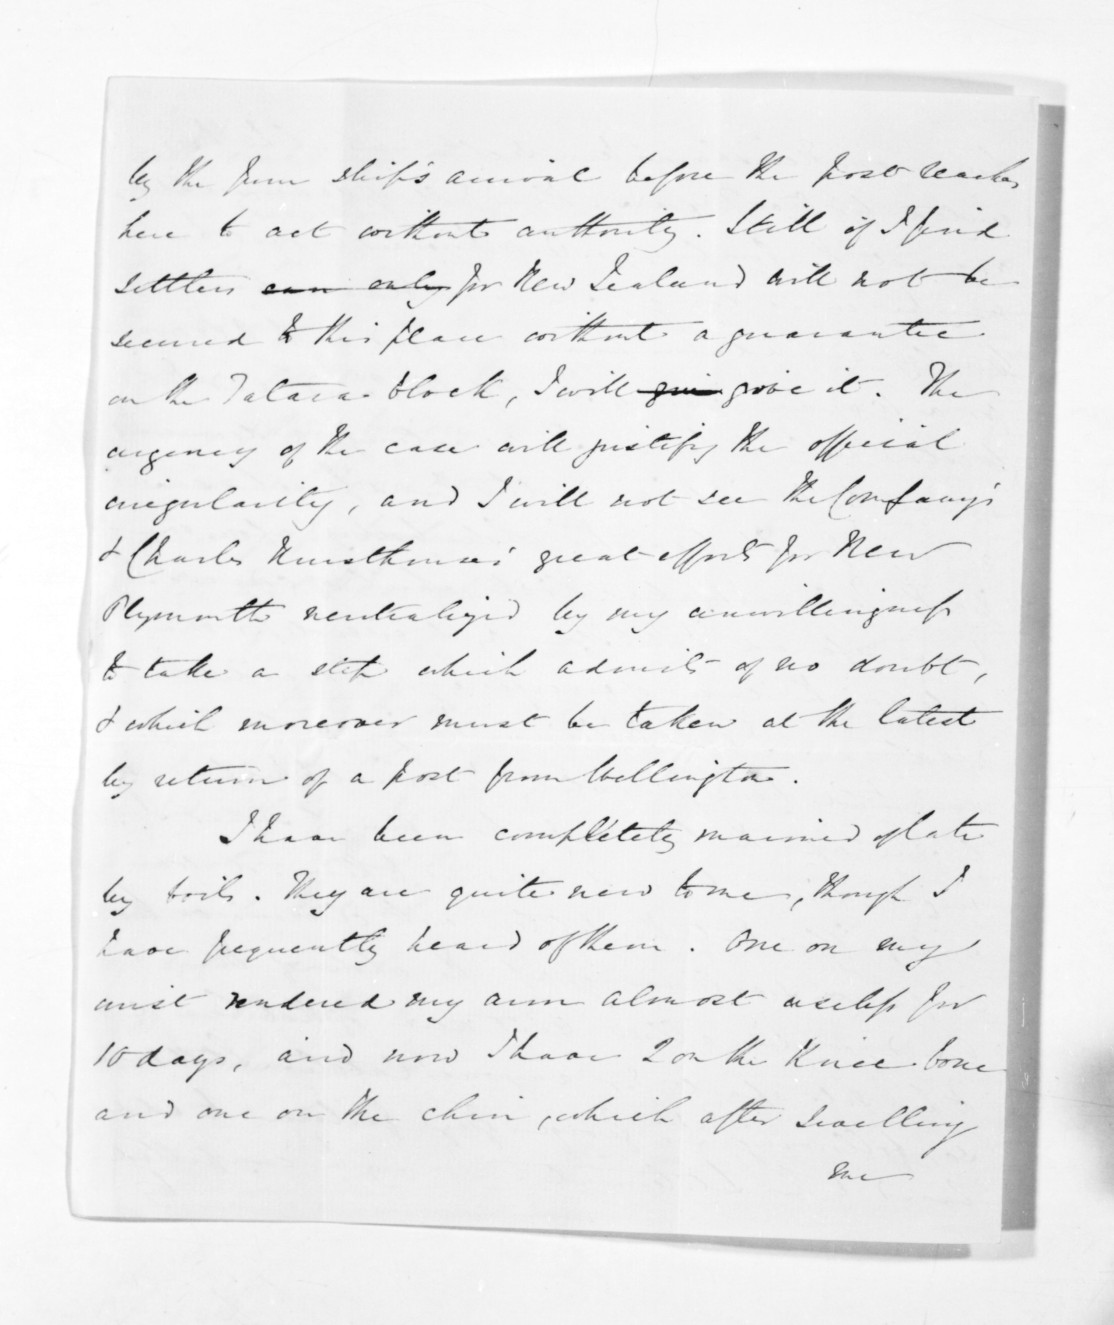 by the ship's arrival before the post reaches
here to act without authority. Still if I find
settlers can only for New Zealand will not be
secured to this place without a guarantee
on the Tatara block, I will give give it. The
urgency of the case will justify the official
irregularity, and I will not see the Company's
& Charles Hursthouse's great efforts for New
Plymouth neutralized by my unwillingness
to take a step which admits of no doubt,
& which moreover must be taken at the latest
by return of a post from Wellington.
I have been completely maimed of late
by boils. They are quite new to me, though I
have frequently heard of them. One on my
wrist rendered my arm almost useless for
10 days, and now I have 2 on the knee bone
and one on the chin, which after swelling
me